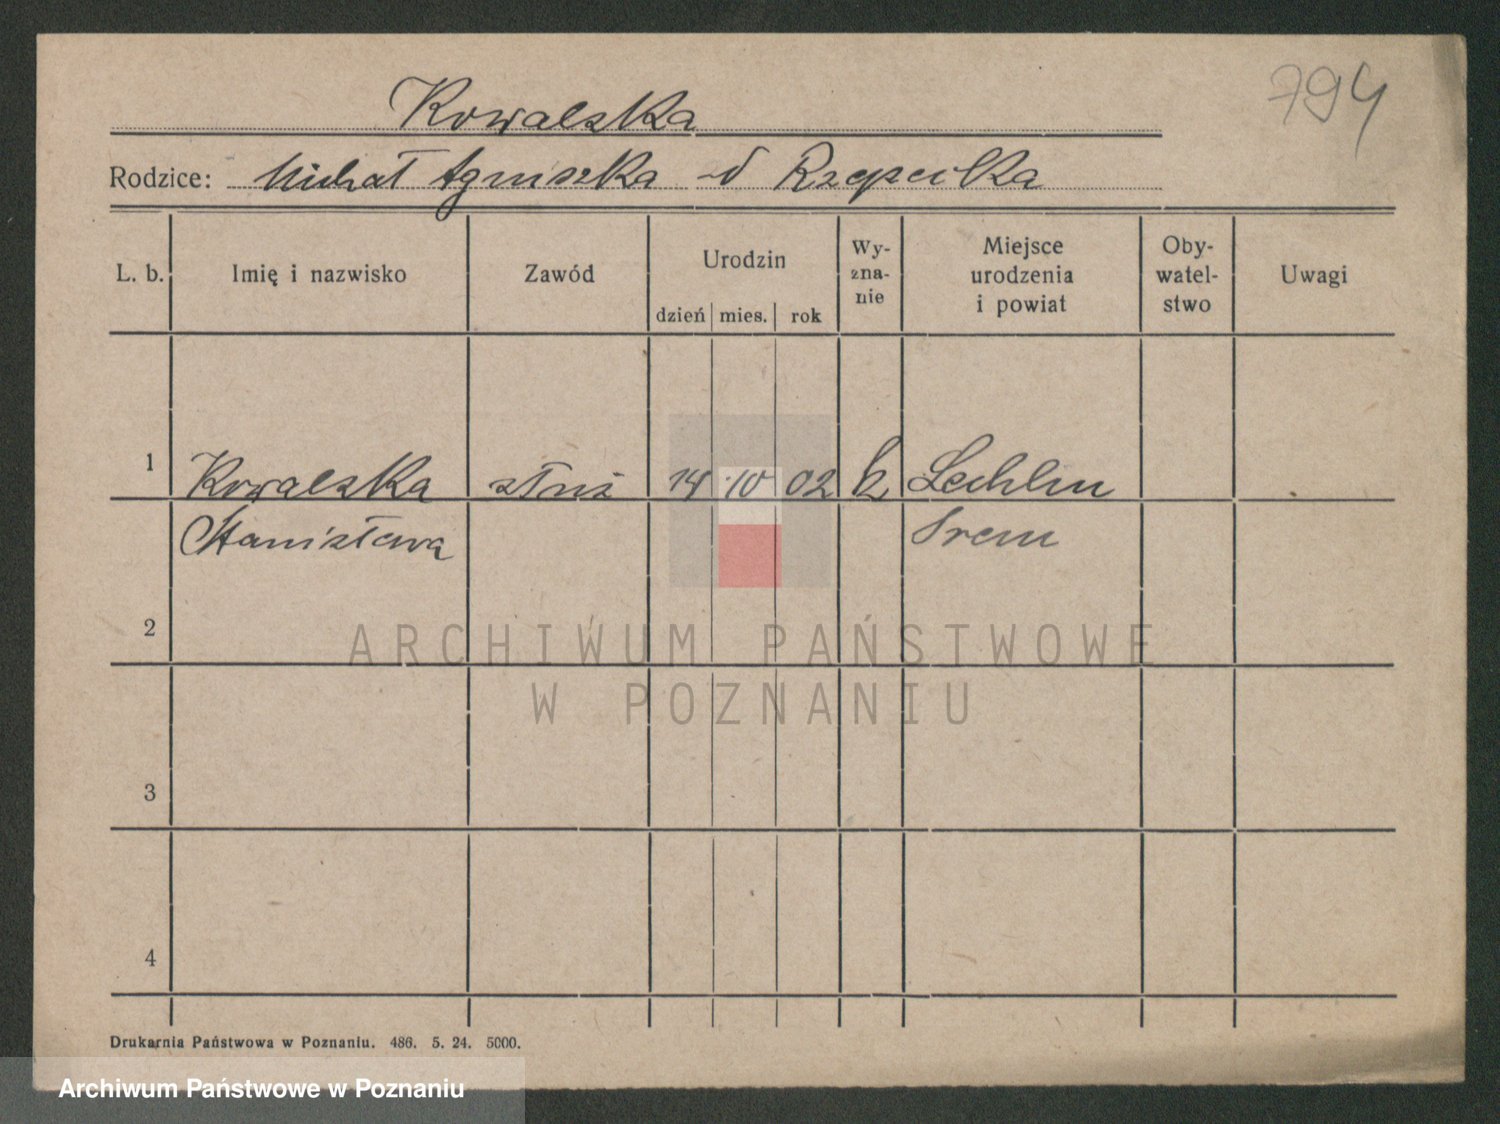 794
Kowalska
Rodzice: Michał Agnieszka -d Rzepecika
L. b. Imię i nazwisko Zawód Urodzin dzień mies. rok Wy-zna-nie Miejsce urodzenia i powiat Oby-watel-stwo Uwagi
1 Kowalska służ 14 10 02 k Lechlin
Stanisława Srem
2
ARCHIWUM PAŃSTWOWE
W POZNANIU
3
4
Drukarnia Państwowa w Poznaniu. 486. 5. 24. 5000.
Archiwum Państwowe w Poznaniu